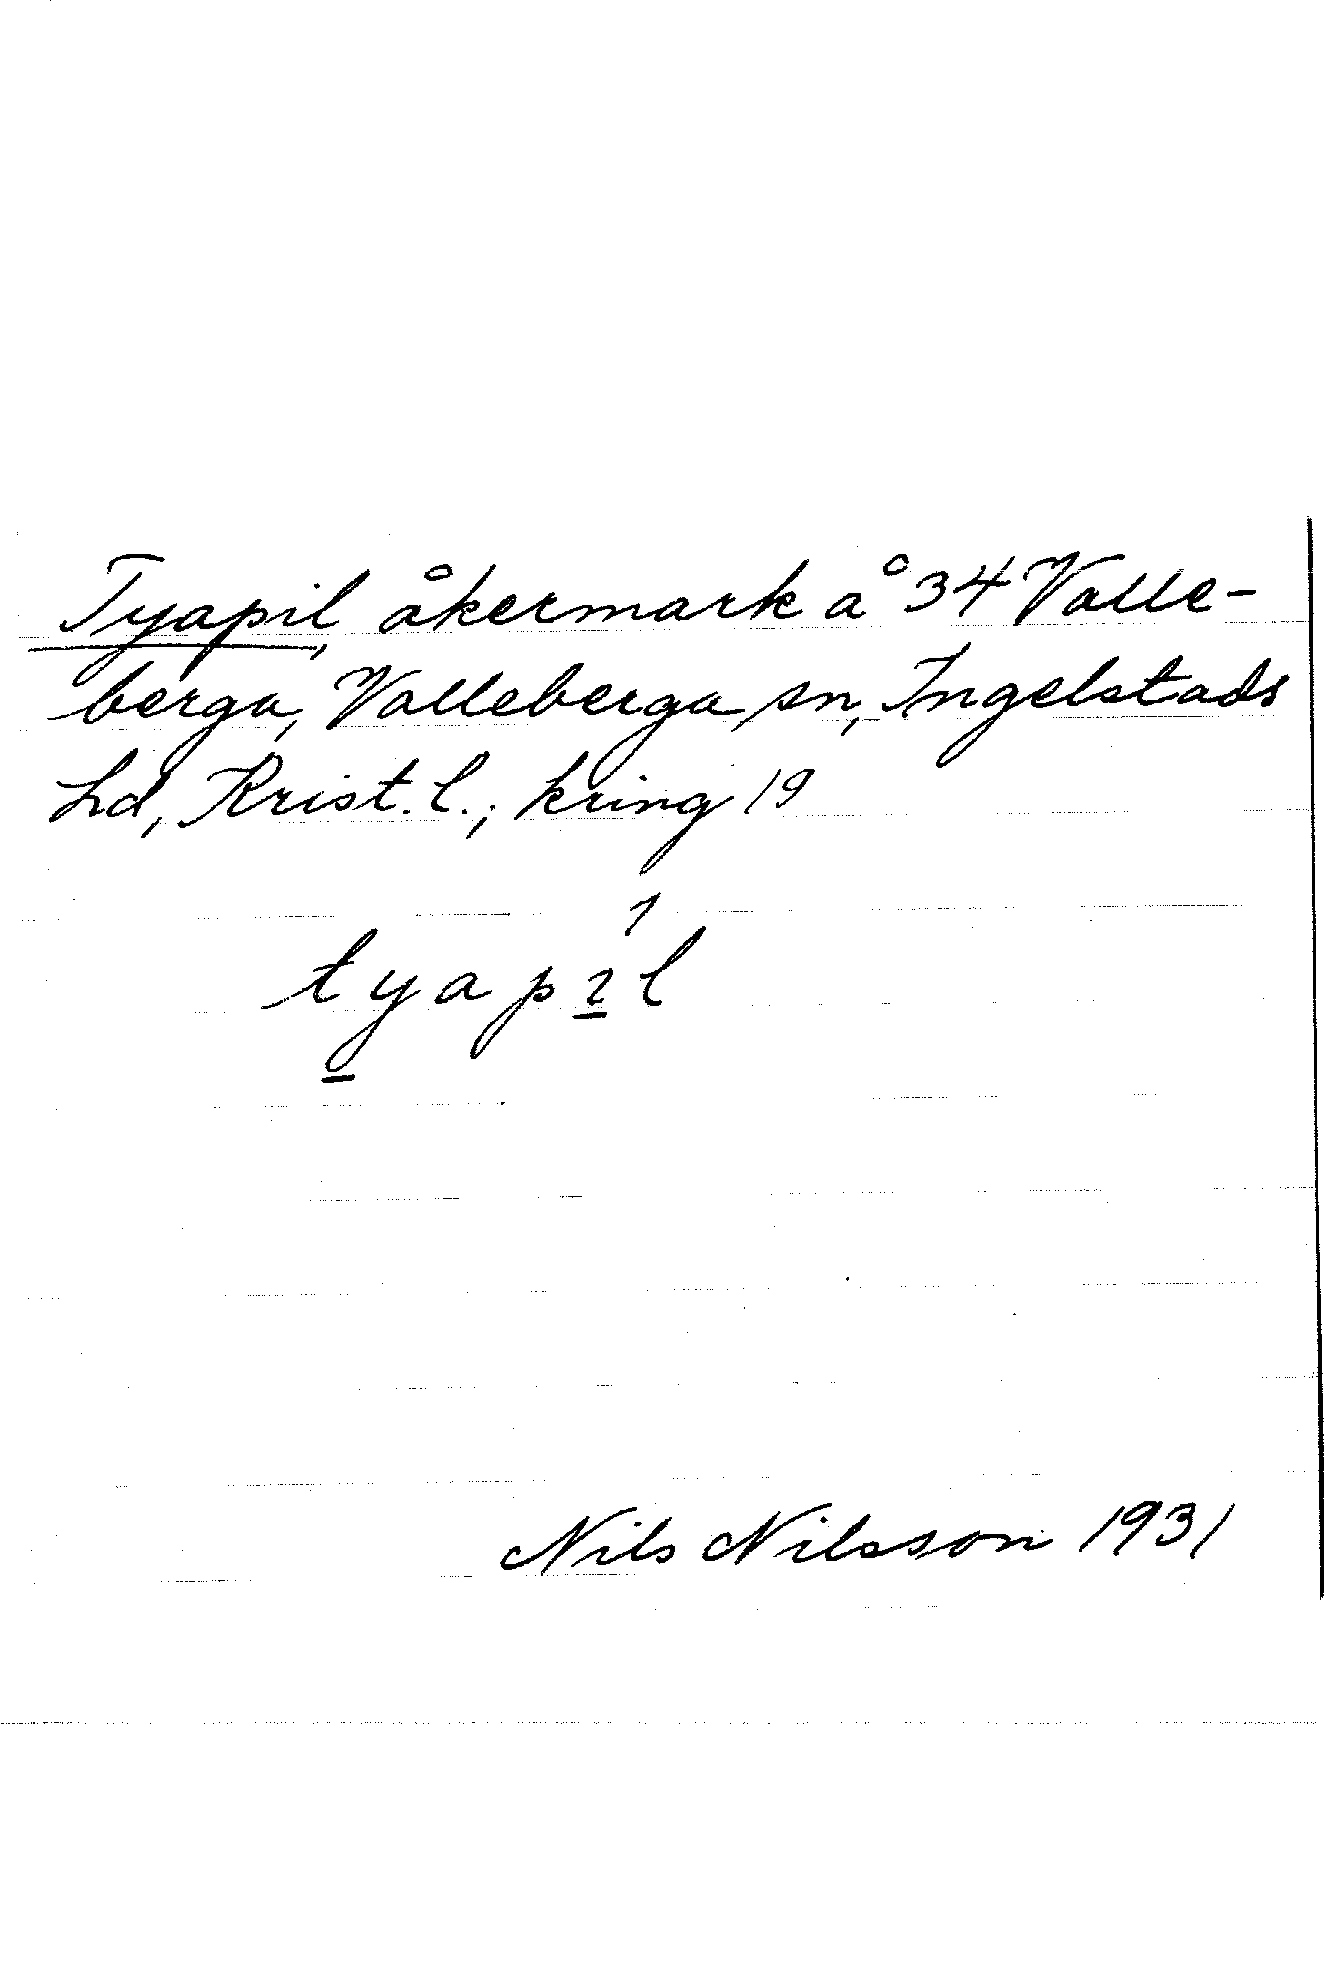 Tyapil, åkermark å 34 Valle-
berga, Valleberga sn, Ingelstads
hd, Krist. l.; kring 19
tyapıl
Nils Nilsson 1931